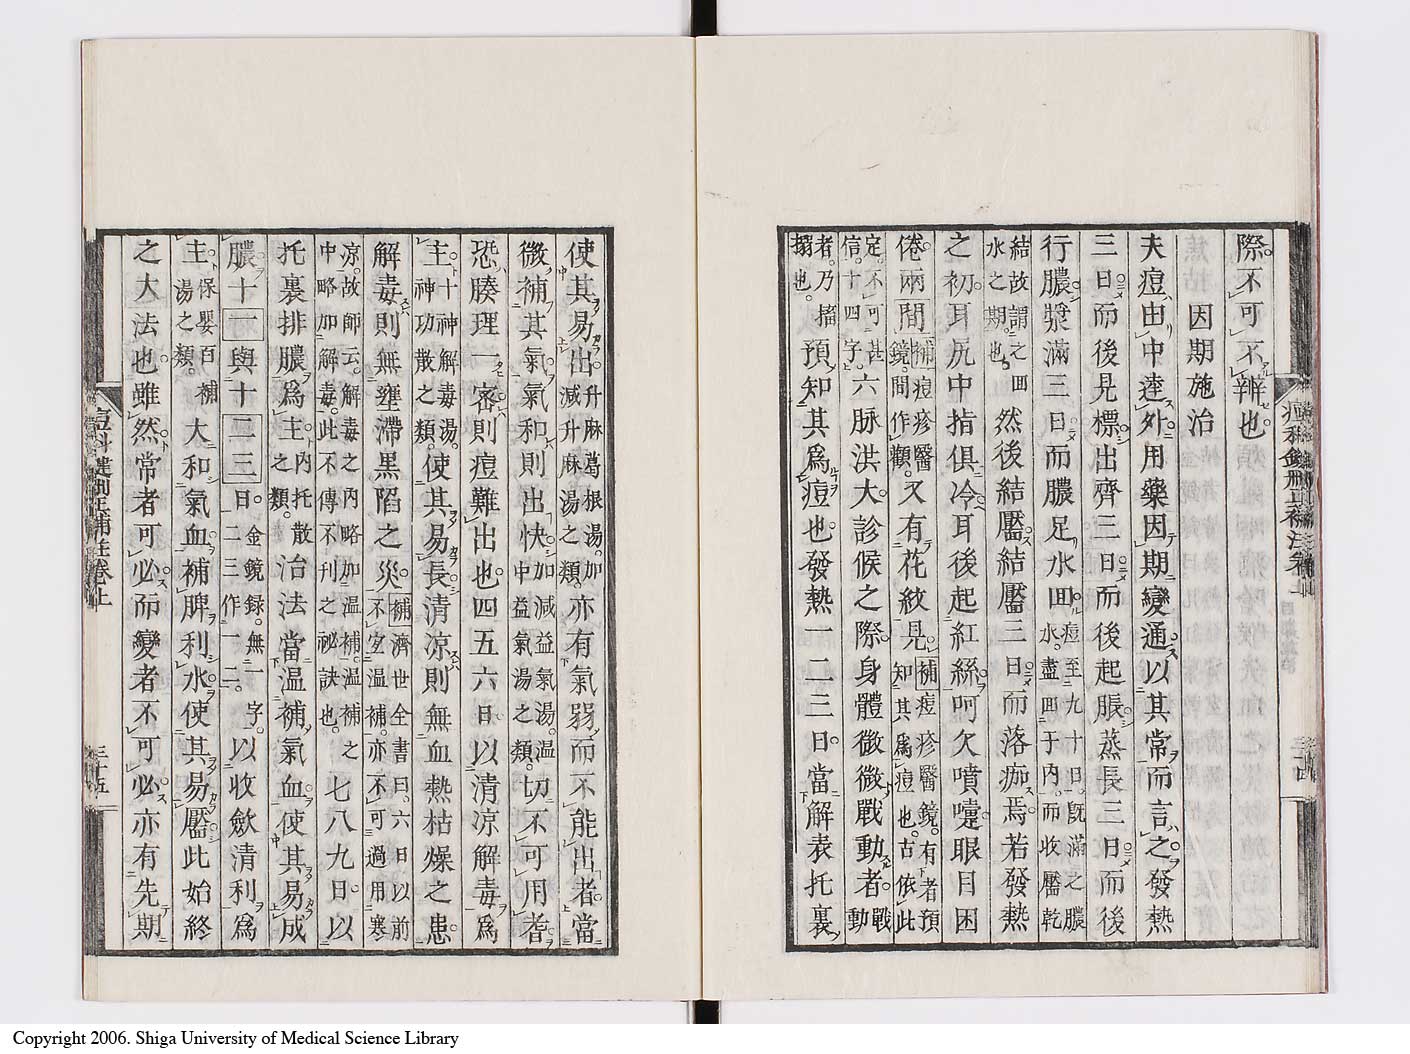 際不可不辨也
因期施治
夫痘由中達外用藥因期變通以其常而言之發熱
三日而後見標出齊三日而後起脹蒸長三日而後
行膿漿滿三日而膿足水回痘至九十日既滿之膿水盡回于内而收靨乾
結故謂之回水之期也然後結靨結靨三日而落痂焉若發熱
之初耳尻中指俱冷耳後起紅絲呵欠噴嚏眼目困
倦兩間補痘疹醫鏡間作觀又有花紋見補痘疹醫鏡有者預知其爲痘也古依此
定不可甚信十四字六脈洪大診候之際身體微微戰動者戰動
者乃搐搦也預知其爲痘也發熱一二三日當解表托裏
痘科鍵刪正補註卷上
三十四
使其易出升麻葛根湯加減升麻湯之類亦有氣弱而不能出者當
微補其氣氣和則出快加減益氣湯温中益氣湯之類切不可用者
恐腠理一密則痘難出也四五六日以清凉解毒爲
主十神解毒湯神功散之類使其易長清凉則無血熱枯燥之患
解毒則無壅滯黑陷之災補濟世全書曰六日以前不宜温補亦不可過用寒
凉故師云解毒之内略加温補温補之中略加解毒此不傳不刊之祕訣也七八九日以
托裏排膿爲主内托散之類治法當温補氣血使其易成
膿十一與十二三日金鏡録無一字二三作一二以收斂清利爲
主保嬰百補湯之類大和氣血補脾利水使其易靨此始終
之大法也雖然常者可必而變者不可必亦有先期
痘科鍵刪正補註卷上
三十五
Copyright 2006. Shiga University of Medical Science Library